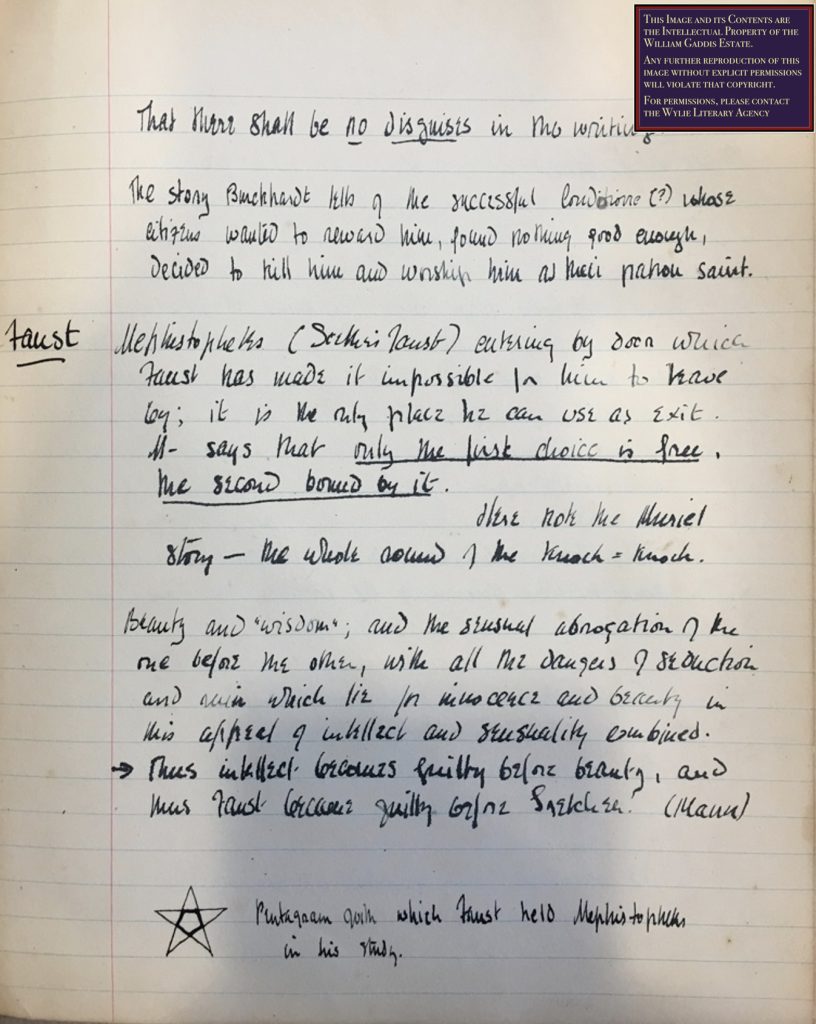 THIS IMAGE AND ITS CONTENTS ARE
THE INTELLECTUAL PROPERTY OF THE
WILLIAM GADDIS ESTATE.
ANY FURTHER REPRODUCTION OF THIS
IMAGE WITHOUT EXPLICIT PERMISSIONS
WILL VIOLATE THAT COPYRIGHT.
FOR PERMISSIONS, PLEASE CONTACT
THE WYLIE LITERARY AGENCY
That there shall be no disguises in the writing
The story Burckhardt tells of the successful Condottiere (?) whose
citizens wanted to reward him, found nothing good enough,
decided to kill him and worship him as their patron saint.
Faust
Mephistopheles (Goethe's Faust) entering by door which
Faust has made it impossible for him to leave
by; it is the only place he can use as exit.
M- says that only the first choice is free,
the second bound by it.
Here note the Muriel
story — the whole sound of the knock = knock.
Beauty and "wisdom"; and the sensual abrogation of the
one before the other, with all the dangers of seduction
and ruin which lie for innocence and beauty in
this appeal of intellect and sensuality combined.
→ Thus intellect becomes guilty before beauty, and
thus Faust became guilty before Gretchen. (Mann)
Pentagram with which Faust held Mephistopheles
in his study.